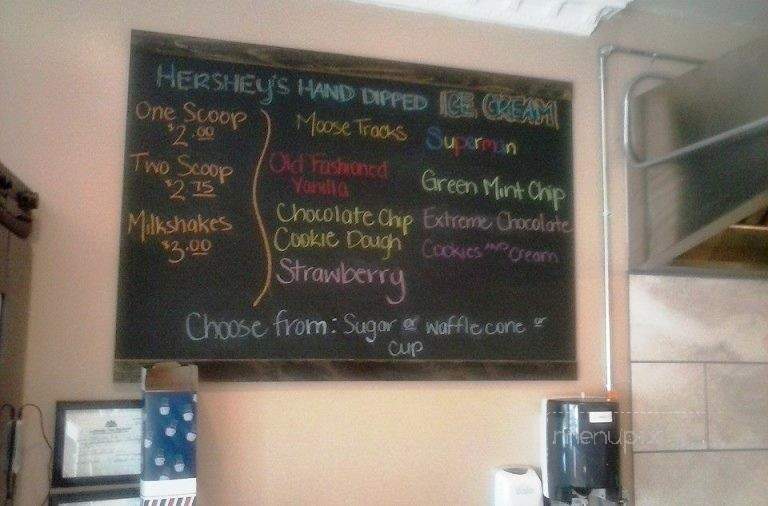 HERSHEY'S HAND DIPPED ICE CREAM
One Scoop
$2.00
Two Scoop
$2.75
Milkshakes
$3.00
Moose Tracks
Old Fashioned
Vanilla
Chocolate Chip
Cookie Dough
Strawberry
Superman
Green Mint Chip
Extreme Chocolate
Cookies AND Cream
Choose from: Sugar or waffle cone or
cup
menupix